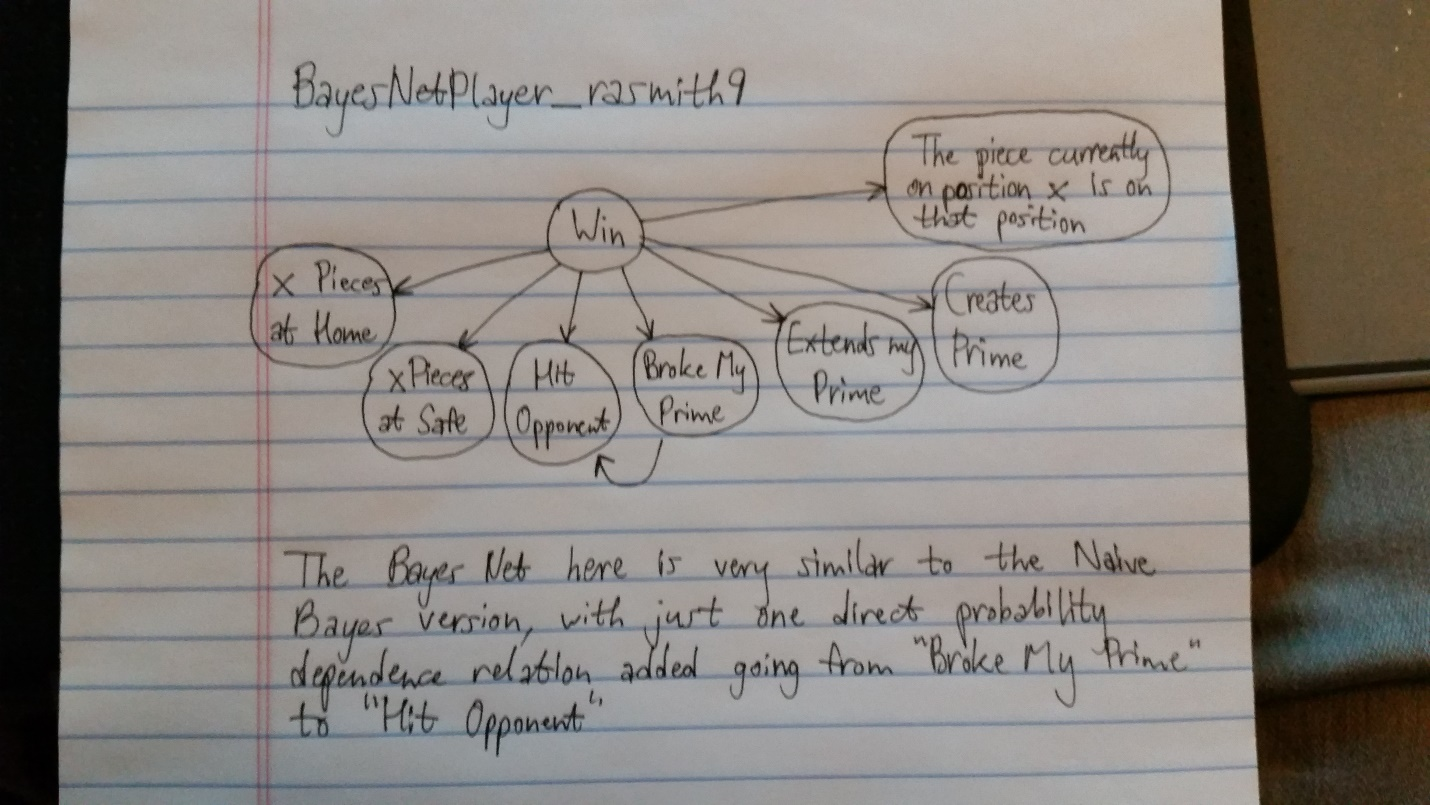 BayesNetPlayer_rasmith9
The piece currently
on position x is on
that position
Win
x Pieces
at Home
x Pieces
at Safe
Hit
Opponent
Broke My
Prime
Extends my
Prime
Creates
Prime
The Bayes Net here is very similar to the Naive
Bayes version, with just one direct probability
dependence relation added going from "Broke My Prime"
to "Hit Opponent"